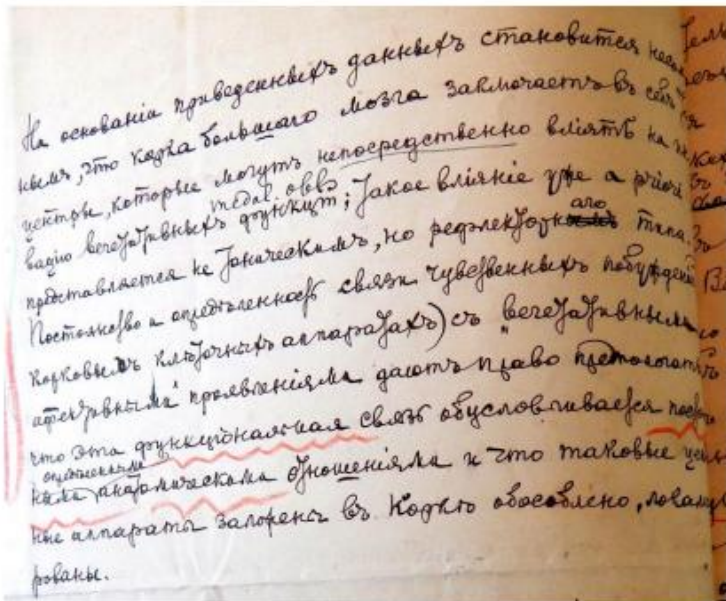 На основаніи приведенныхъ данныхъ становится несом
нымъ, что кора большаго мозга заключаетъ въ себѣ
центры, которые могутъ непосредственно вліять на
вацію вегетативныхъ функцій; такое вліяніе уже a priori
представляется не тоническимъ, но рефлекторн аго типа.
Постоянство и опредѣленность связи чувственныхъ побужденій
корковыхъ клѣточныхъ аппаратахъ) съ „вегетативными
афективными проявленіями даютъ право предполагать
что эта функціональная связь обусловливается
ными анатомическими отношеніями и что таковые
ные аппараты заложены въ корѣ обособлено, локали
рованы.